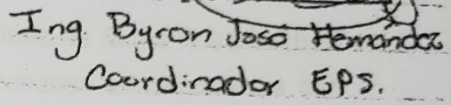 Ing. Byron José Hernández
Coordinador EPS.